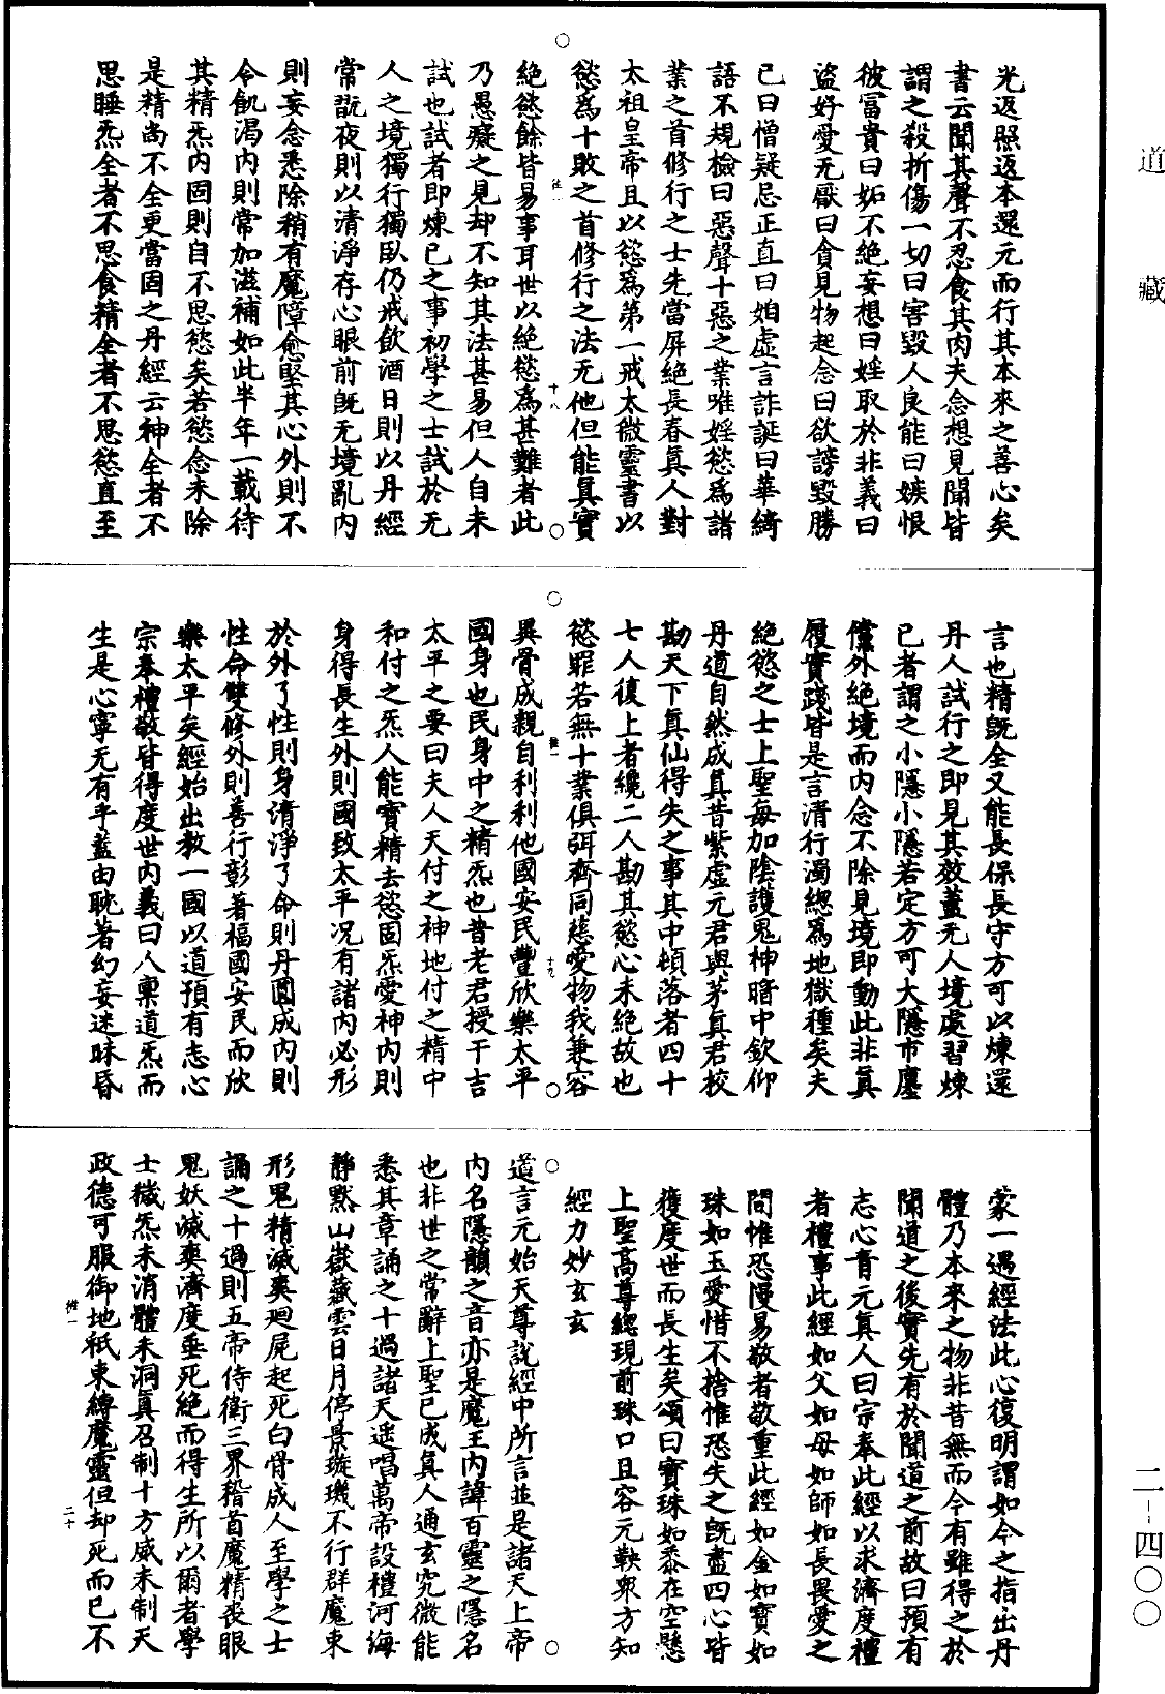 道藏
光返照返本還元而行其本來之善心矣
書云聞其聲不忍食其肉夫念想見聞皆
謂之殺折傷一切曰害毀人良能曰嫉恨
彼富貴曰妬不絕妄想曰婬取於非義曰
盜好愛无厭曰貪見物起念曰欲謗毀勝
己曰憎疑忌正直曰姤虛言詐誕曰華綺
語不規檢曰惡聲十惡之業唯婬慾為諸
業之首修行之士先當屏絕長春真人對
太祖皇帝且以慾為第一戒太微靈書以
慾為十敗之首修行之法无他但能真實
絕慾餘皆易事耳世以絕慾為甚難者此
乃愚癡之見却不知其法甚易但人自未
試也試者即煉己之事初學之士試於无
人之境獨行獨臥仍戒飲酒日則以丹經
常翫夜則以清淨存心眼前旣无境亂內
則妄念悉除稍有魔障愈堅其心外則不
令飢渴內則常加滋補如此半年一載待
其精炁內固則自不思慾矣若慾念未除
是精尚不全更當固之丹經云神全者不
思睡炁全者不思食精全者不思慾直至
十八
言也精旣全又能長保長守方可以煉還
丹人試行之即見其效蓋无人境處習煉
己者謂之小隱小隱若定方可大隱市廛
儻外絕境而內念不除見境即動此非真
履實踐皆是言清行濁緫為地獄種矣夫
絕慾之士上聖每加陰護鬼神暗中欽仰
丹道自然成真昔紫虛元君與茅真君校
勘天下真仙得失之事其中頓落者四十
七人復上者纔二人勘其慾心未絕故也
慾罪若無十業俱弭齊同慈愛物我兼容
異骨成親自利利他國安民豐欣樂太平
國身也民身中之精炁也昔老君授干吉
太平之要曰夫人天付之神地付之精中
和付之炁人能實精去慾固炁愛神內則
身得長生外則國致太平况有諸內必形
於外了性則身清淨了命則丹圓成內則
性命雙修外則善行彰著福國安民而欣
樂太平矣經始出教一國以道預有志心
宗奉禮敬皆得度世內義曰人稟道炁而
生是心寧无有乎蓋由耽著幻妄迷昧昏
十九
蒙一遇經法此心復明謂如今之指出丹
體乃本來之物非昔無而今有雖得之於
聞道之後實先有於聞道之前故曰預有
志心青元真人曰宗奉此經以求濟度禮
者禮事此經如父如母如師如長畏愛之
間惟恐慢易敬者敬重此經如金如寶如
珠如玉愛惜不捨惟恐失之旣盡四心皆
獲度世而長生矣頌曰寶珠如黍在空懸
上聖高尊緫現前珠口且容元鞅衆方知
經力妙玄玄
道言元始天尊說經中所言並是諸天上帝
內名隱韻之音亦是魔王內諱百靈之隱名
也非世之常辭上聖已成真人通玄究微能
悉其章誦之十過諸天遥唱萬帝設禮河海
靜默山嶽藏雲日月停景璇璣不行群魔束
形鬼精滅爽廻屍起死白骨成人至學之士
誦之十過則五帝侍衛三界稽首魔精喪眼
鬼妖滅爽濟度垂死絕而得生所以爾者學
士穢炁未消體未洞真召制十方威未制天
政德可服御地祇束縛魔靈但却死而已不
二十
二-四〇〇